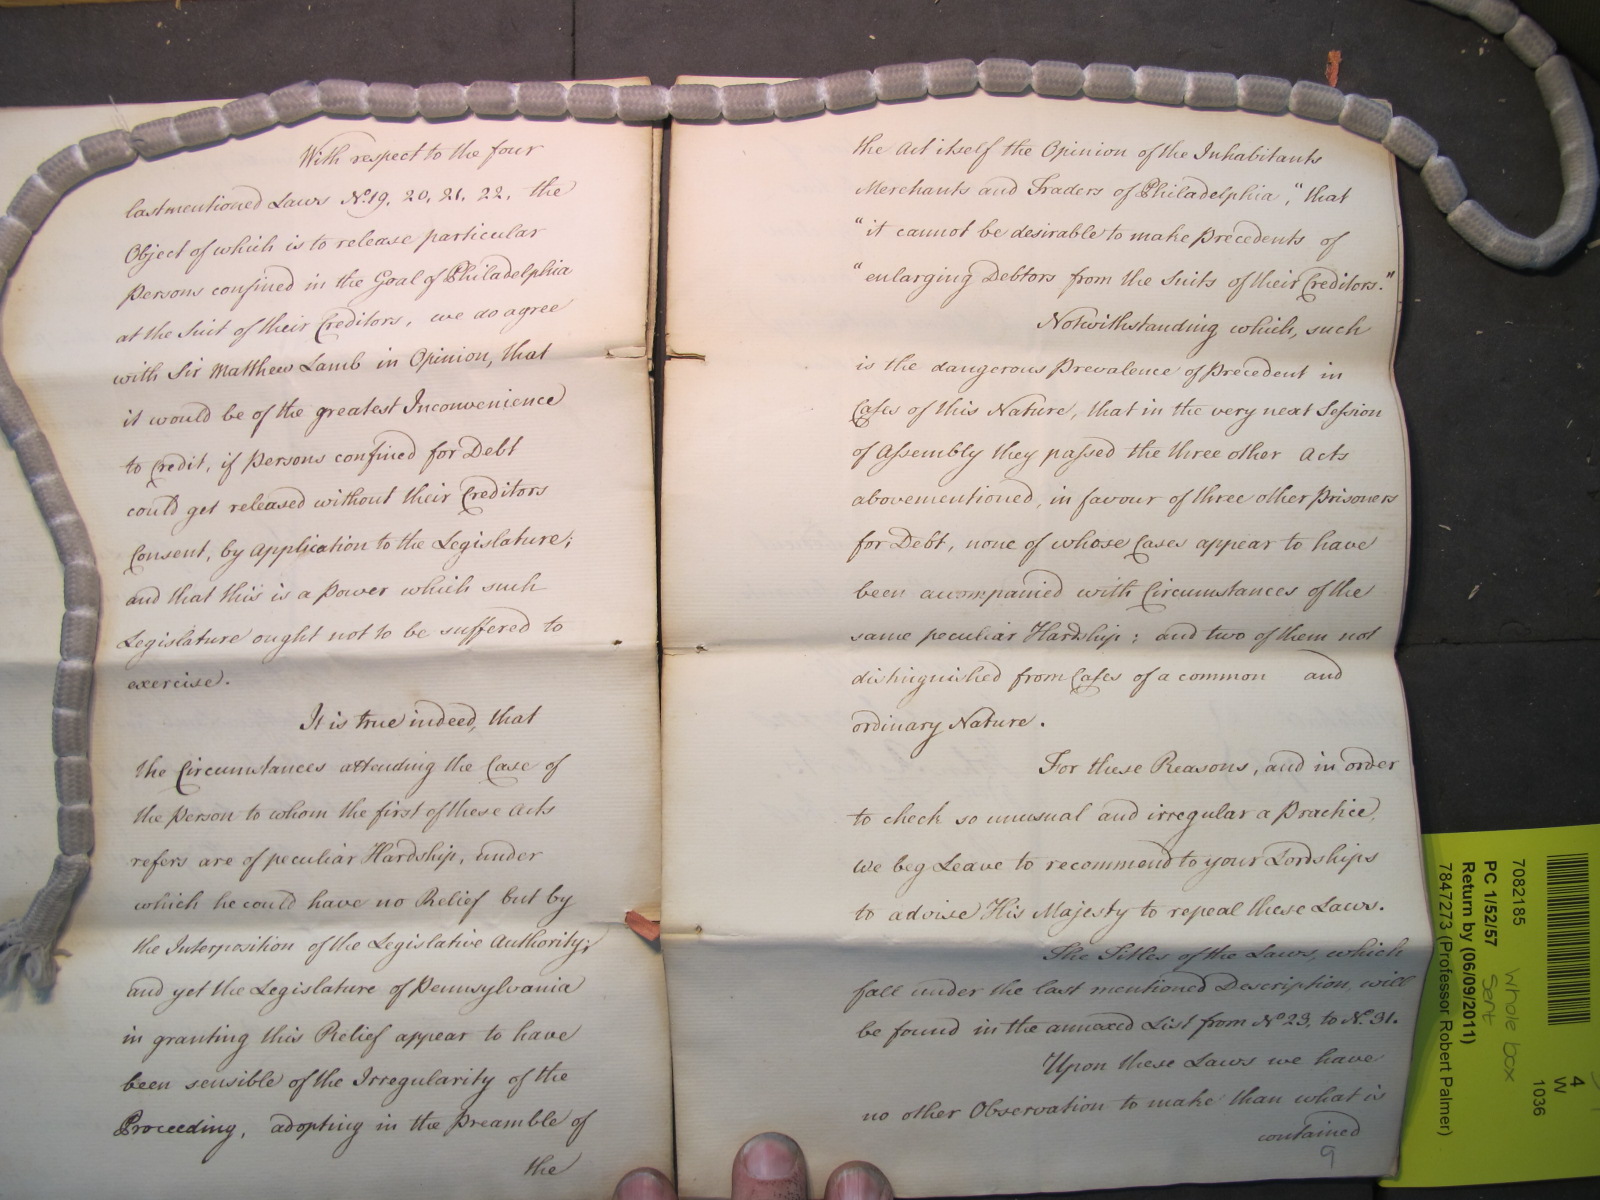 With respect to the four
lastmentioned Laws No. 19, 20, 21, 22, the
Object of which is to release particular
Persons confined in the Goal of Philadelphia
at the Suit of their Creditors, we do agree
with Sir Matthew Lamb in Opinion, that
it would be of the greatest Inconvenience
to Credit, if Persons confined for Debt
could get released without their Creditors
Consent, by Application to the Legislature;
and that this is a Power which such
Legislature ought not to be suffered to
exercise.
It is true indeed, that
the Circumstances attending the Case of
the Person to whom the first of these Acts
refers are of peculiar Hardship, under
which he could have no Relief but by
the Interposition of the Legislative Authority;
and yet the Legislature of Pennsylvania
in granting this Relief appear to have
been sensible of the Irregularity of the
Proceeding, adopting in the Preamble of
the
the Act itself the Opinion of the Inhabitants
Merchants and Traders of Philadelphia, "that
"it cannot be desirable to make Precedents of
"enlarging Debtors from the Suits of their Creditors."
Notwithstanding which, such
is the dangerous Prevalence of Precedent in
Cases of this Nature, that in the very next Session
of Assembly they passed the three other Acts
abovementioned, in favour of three other Prisoners
for Debt, none of whose Cases appear to have
been accompanied with Circumstances of the
same peculiar Hardship; and two of them not
distinguished from Cases of a common and
ordinary Nature.
For these Reasons, and in order
to check so unusual and irregular a Practice,
we beg Leave to recommend to your Lordships
to advise His Majesty to repeal these Laws.
The Titles of the Laws, which
fall under the last mentioned Description, will
be found in the annexed List from No. 23, to No. 31.
Upon these Laws we have
no other Observation to make than what is
contained
9
4
W
1036
7082185
whole box
PC 1/52/57
Sent
Return by (06/09/2011)
7847273 (Professor Robert Palmer)